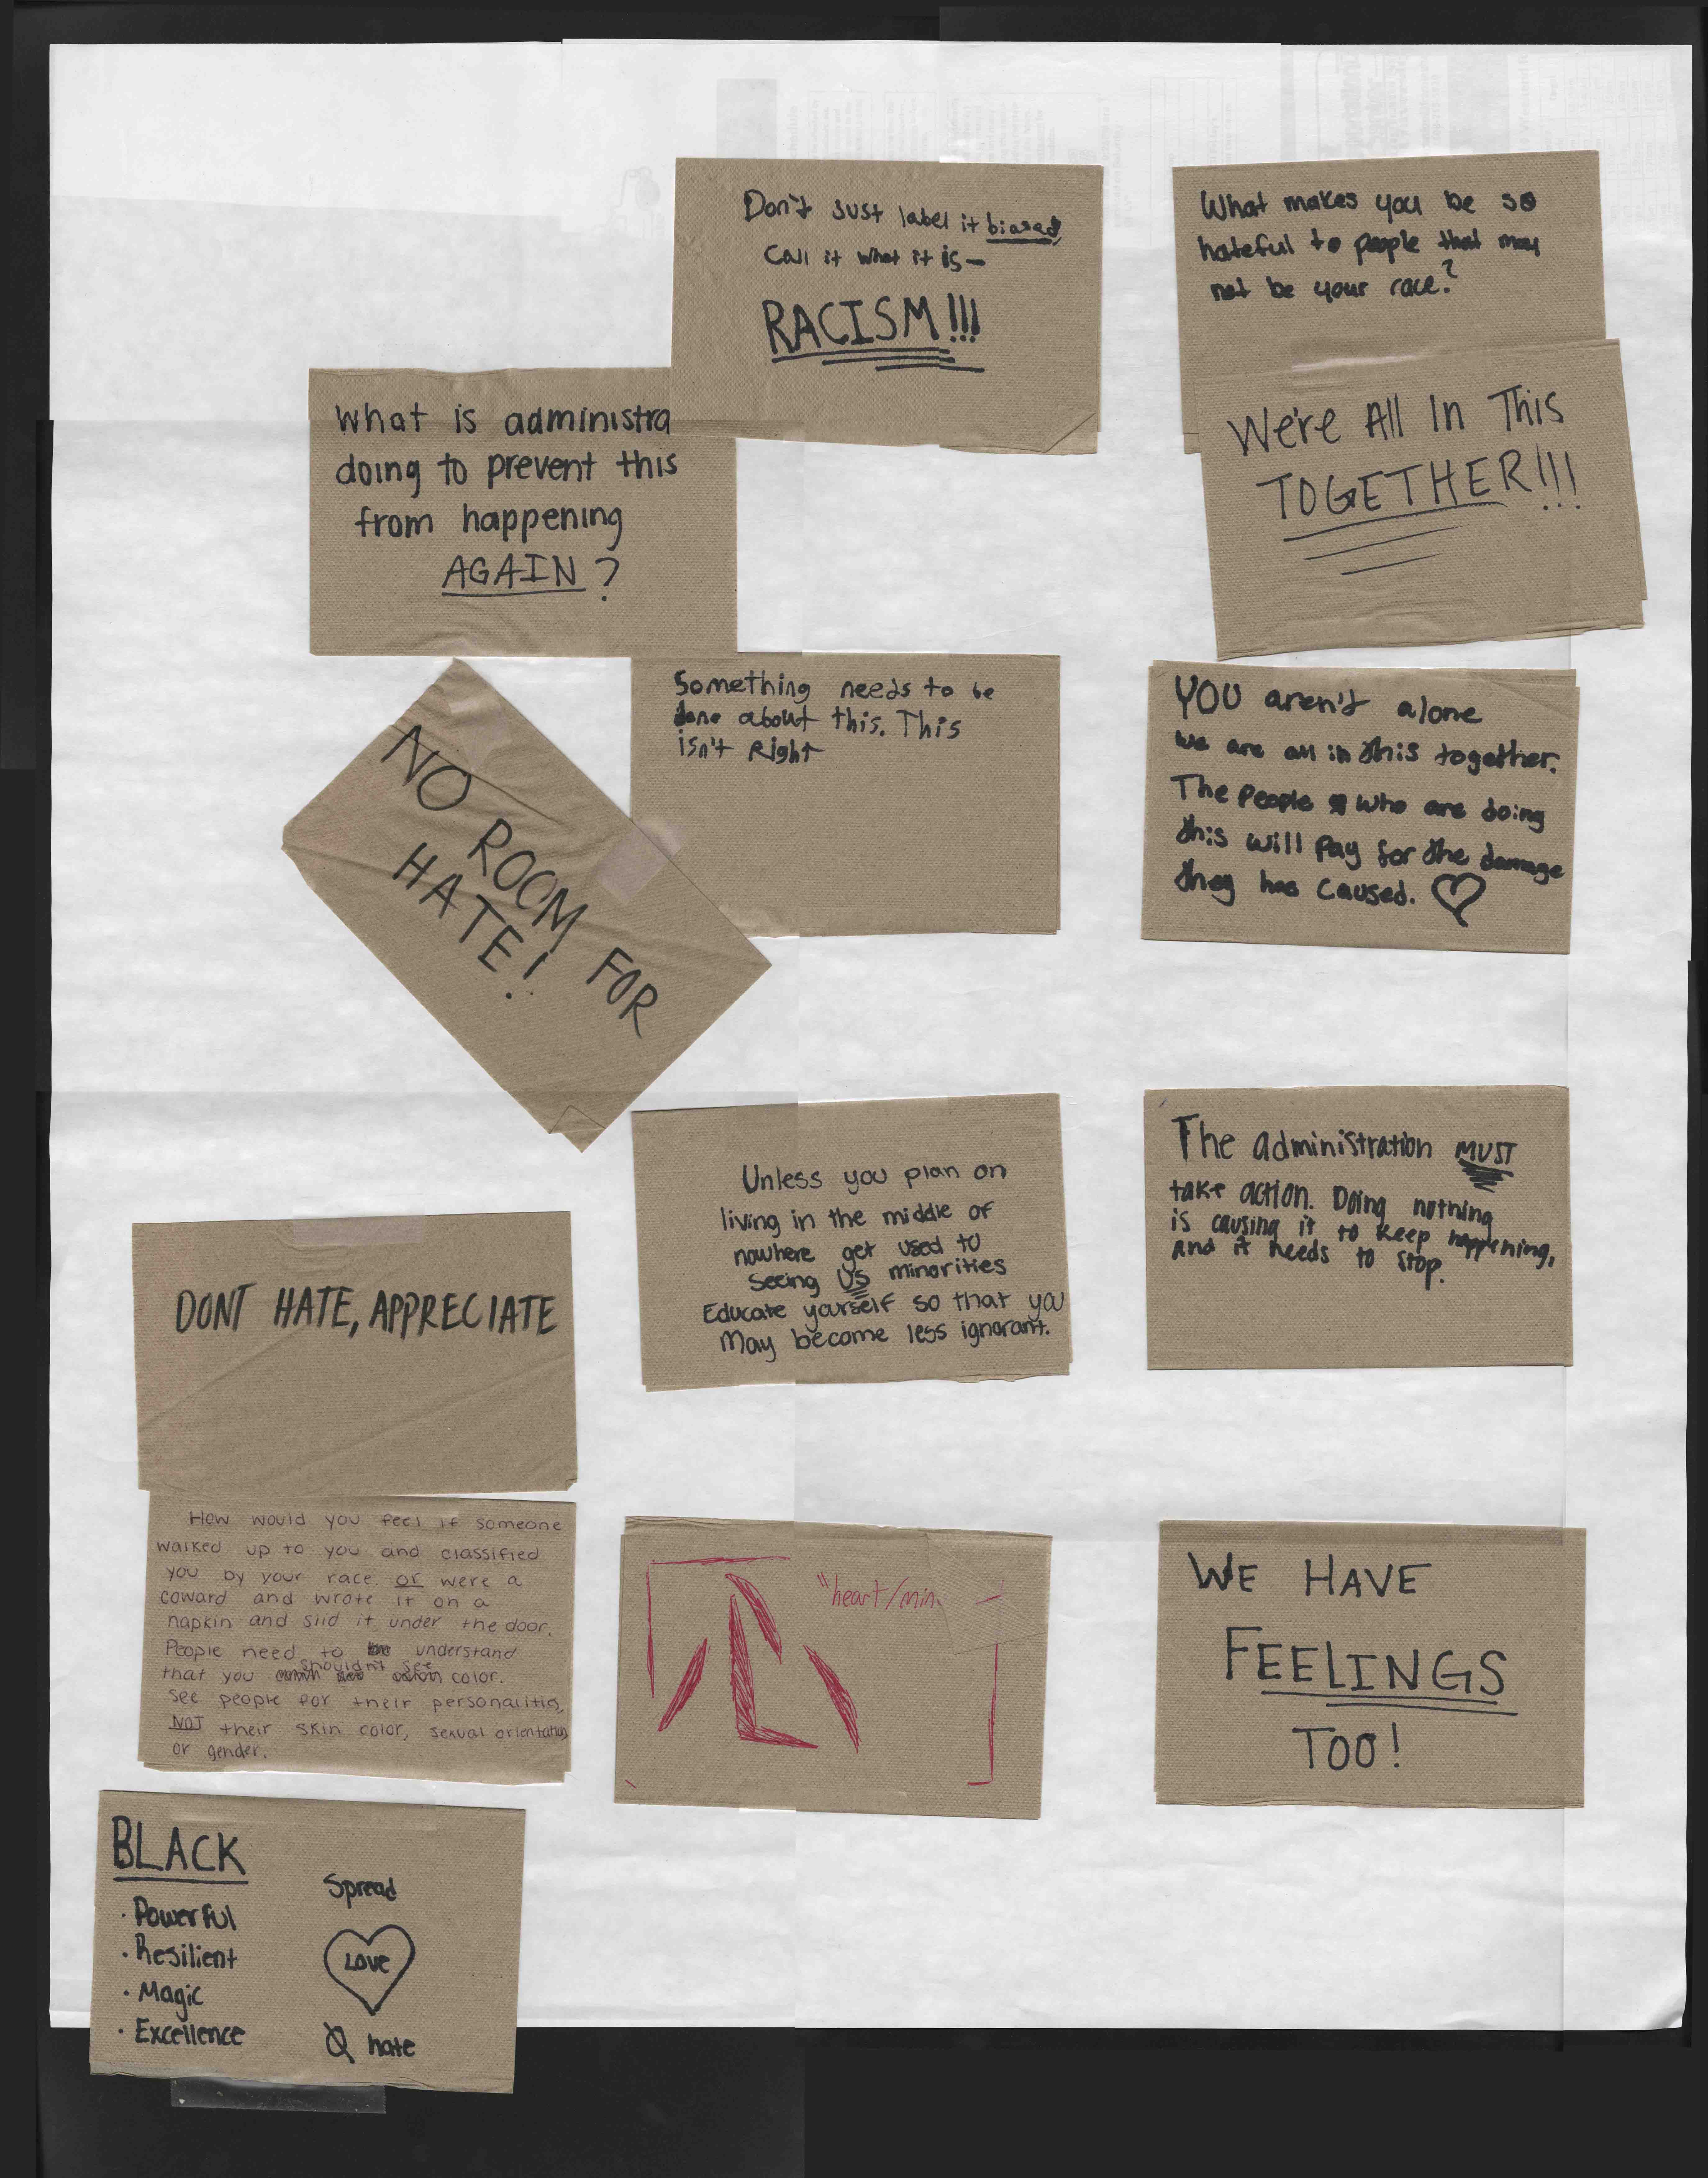 Don't Just label it biased,
Call it what it is—
RACISM!!!
What makes you be so
hateful to people that may
not be your race?
What is administra
doing to prevent this
from happening
AGAIN?
We're All In This
TOGETHER!!!
NO ROOM FOR
HATE!
Something needs to be
done about this. This
isn't Right
YOU aren't alone
We are all in this together.
The people who are doing
this will pay for the damage
they has caused. ♡
Unless you plan on
living in the middle of
nowhere get used to
seeing US minorities
Educate yourself so that you
May become less ignorant.
The administration MUST
take action. Doing nothing
is causing it to keep happening,
and it needs to stop.
DONT HATE, APPRECIATE
How would you feel if someone
walked up to you and classified
you by your race. or were a
coward and wrote it on a
napkin and slid it under the door.
People need to understand
that you shouldn't see color.
See people for their personalities,
NOT their skin color, sexual orientation,
or gender.
"heart/min
心
WE HAVE
FEELINGS
TOO!
BLACK
· Powerful
· Resilient
· Magic
· Excellence
Spread
Love
hate